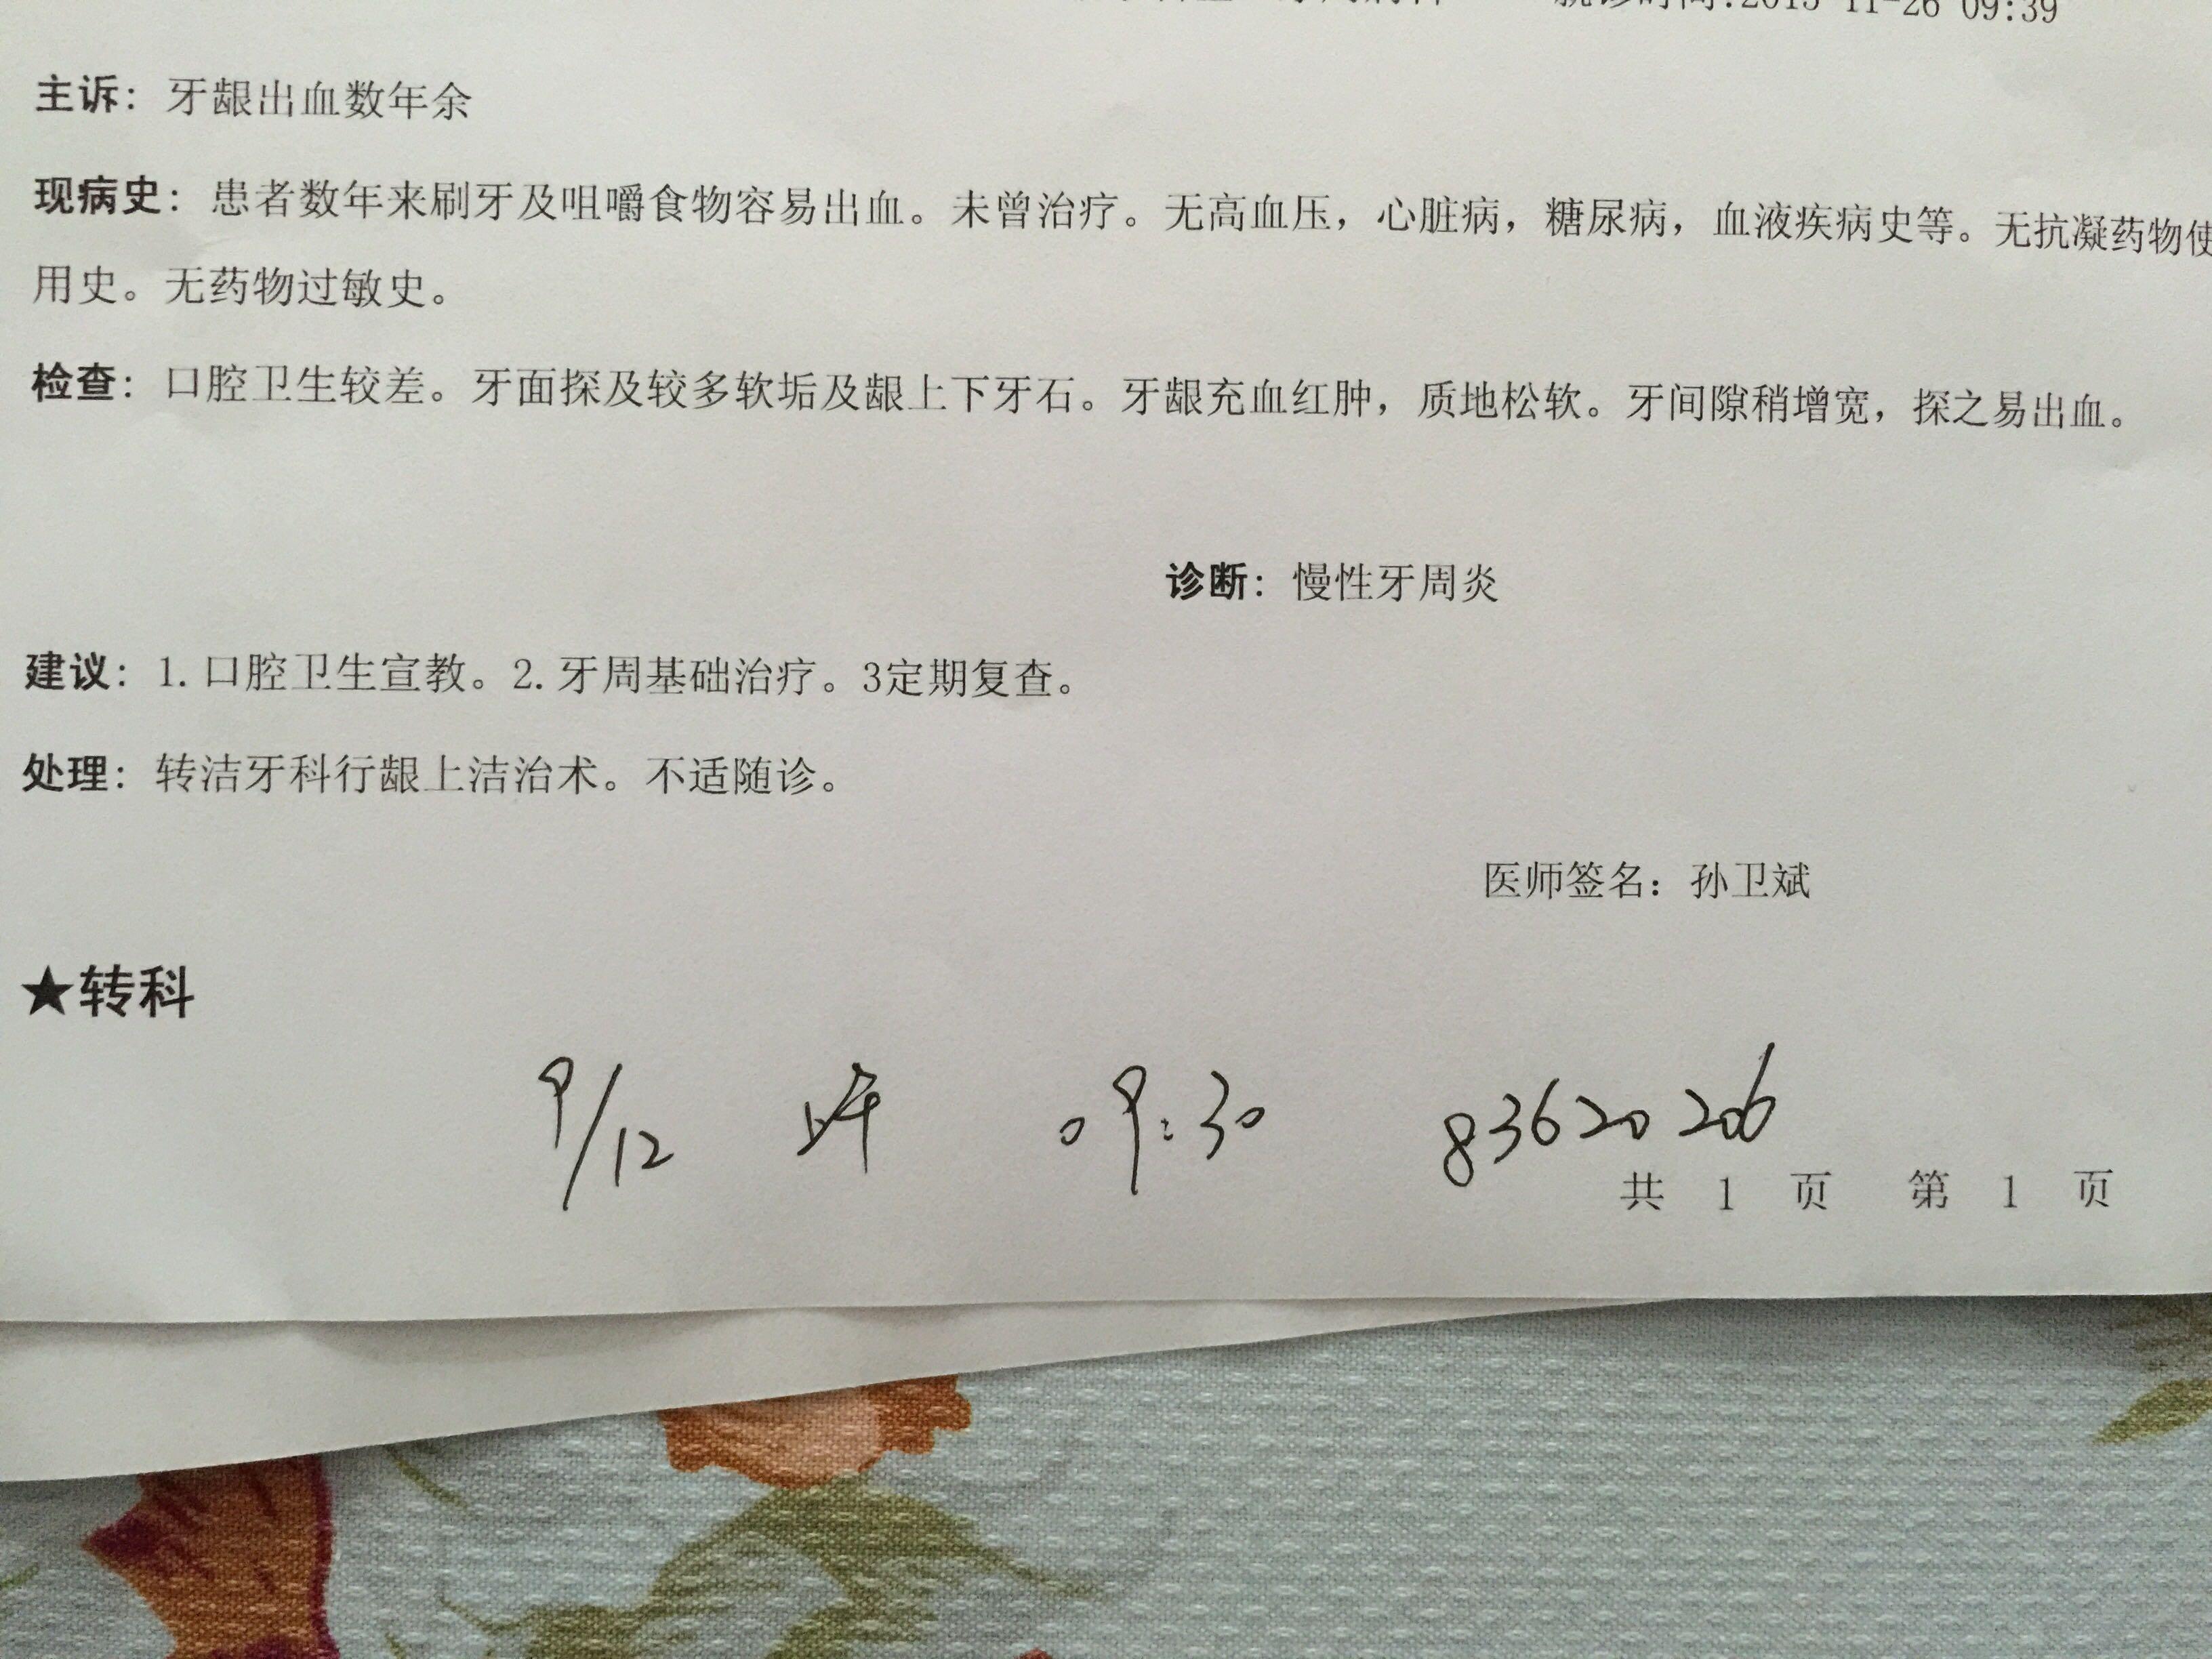 就诊时间:2015-11-26 09:39
主诉：牙龈出血数年余
现病史：患者数年来刷牙及咀嚼食物容易出血。未曾治疗。无高血压，心脏病，糖尿病，血液疾病史等。无抗凝药物使
用史。无药物过敏史。
检查：口腔卫生较差。牙面探及较多软垢及龈上下牙石。牙龈充血红肿，质地松软。牙间隙稍增宽，探之易出血。
诊断：慢性牙周炎
建议：1.口腔卫生宣教。2.牙周基础治疗。3定期复查。
处理：转洁牙科行龈上洁治术。不适随诊。
医师签名：孙卫斌
★转科
9/12 上午 09:30 83620206
共 1 页 第 1 页